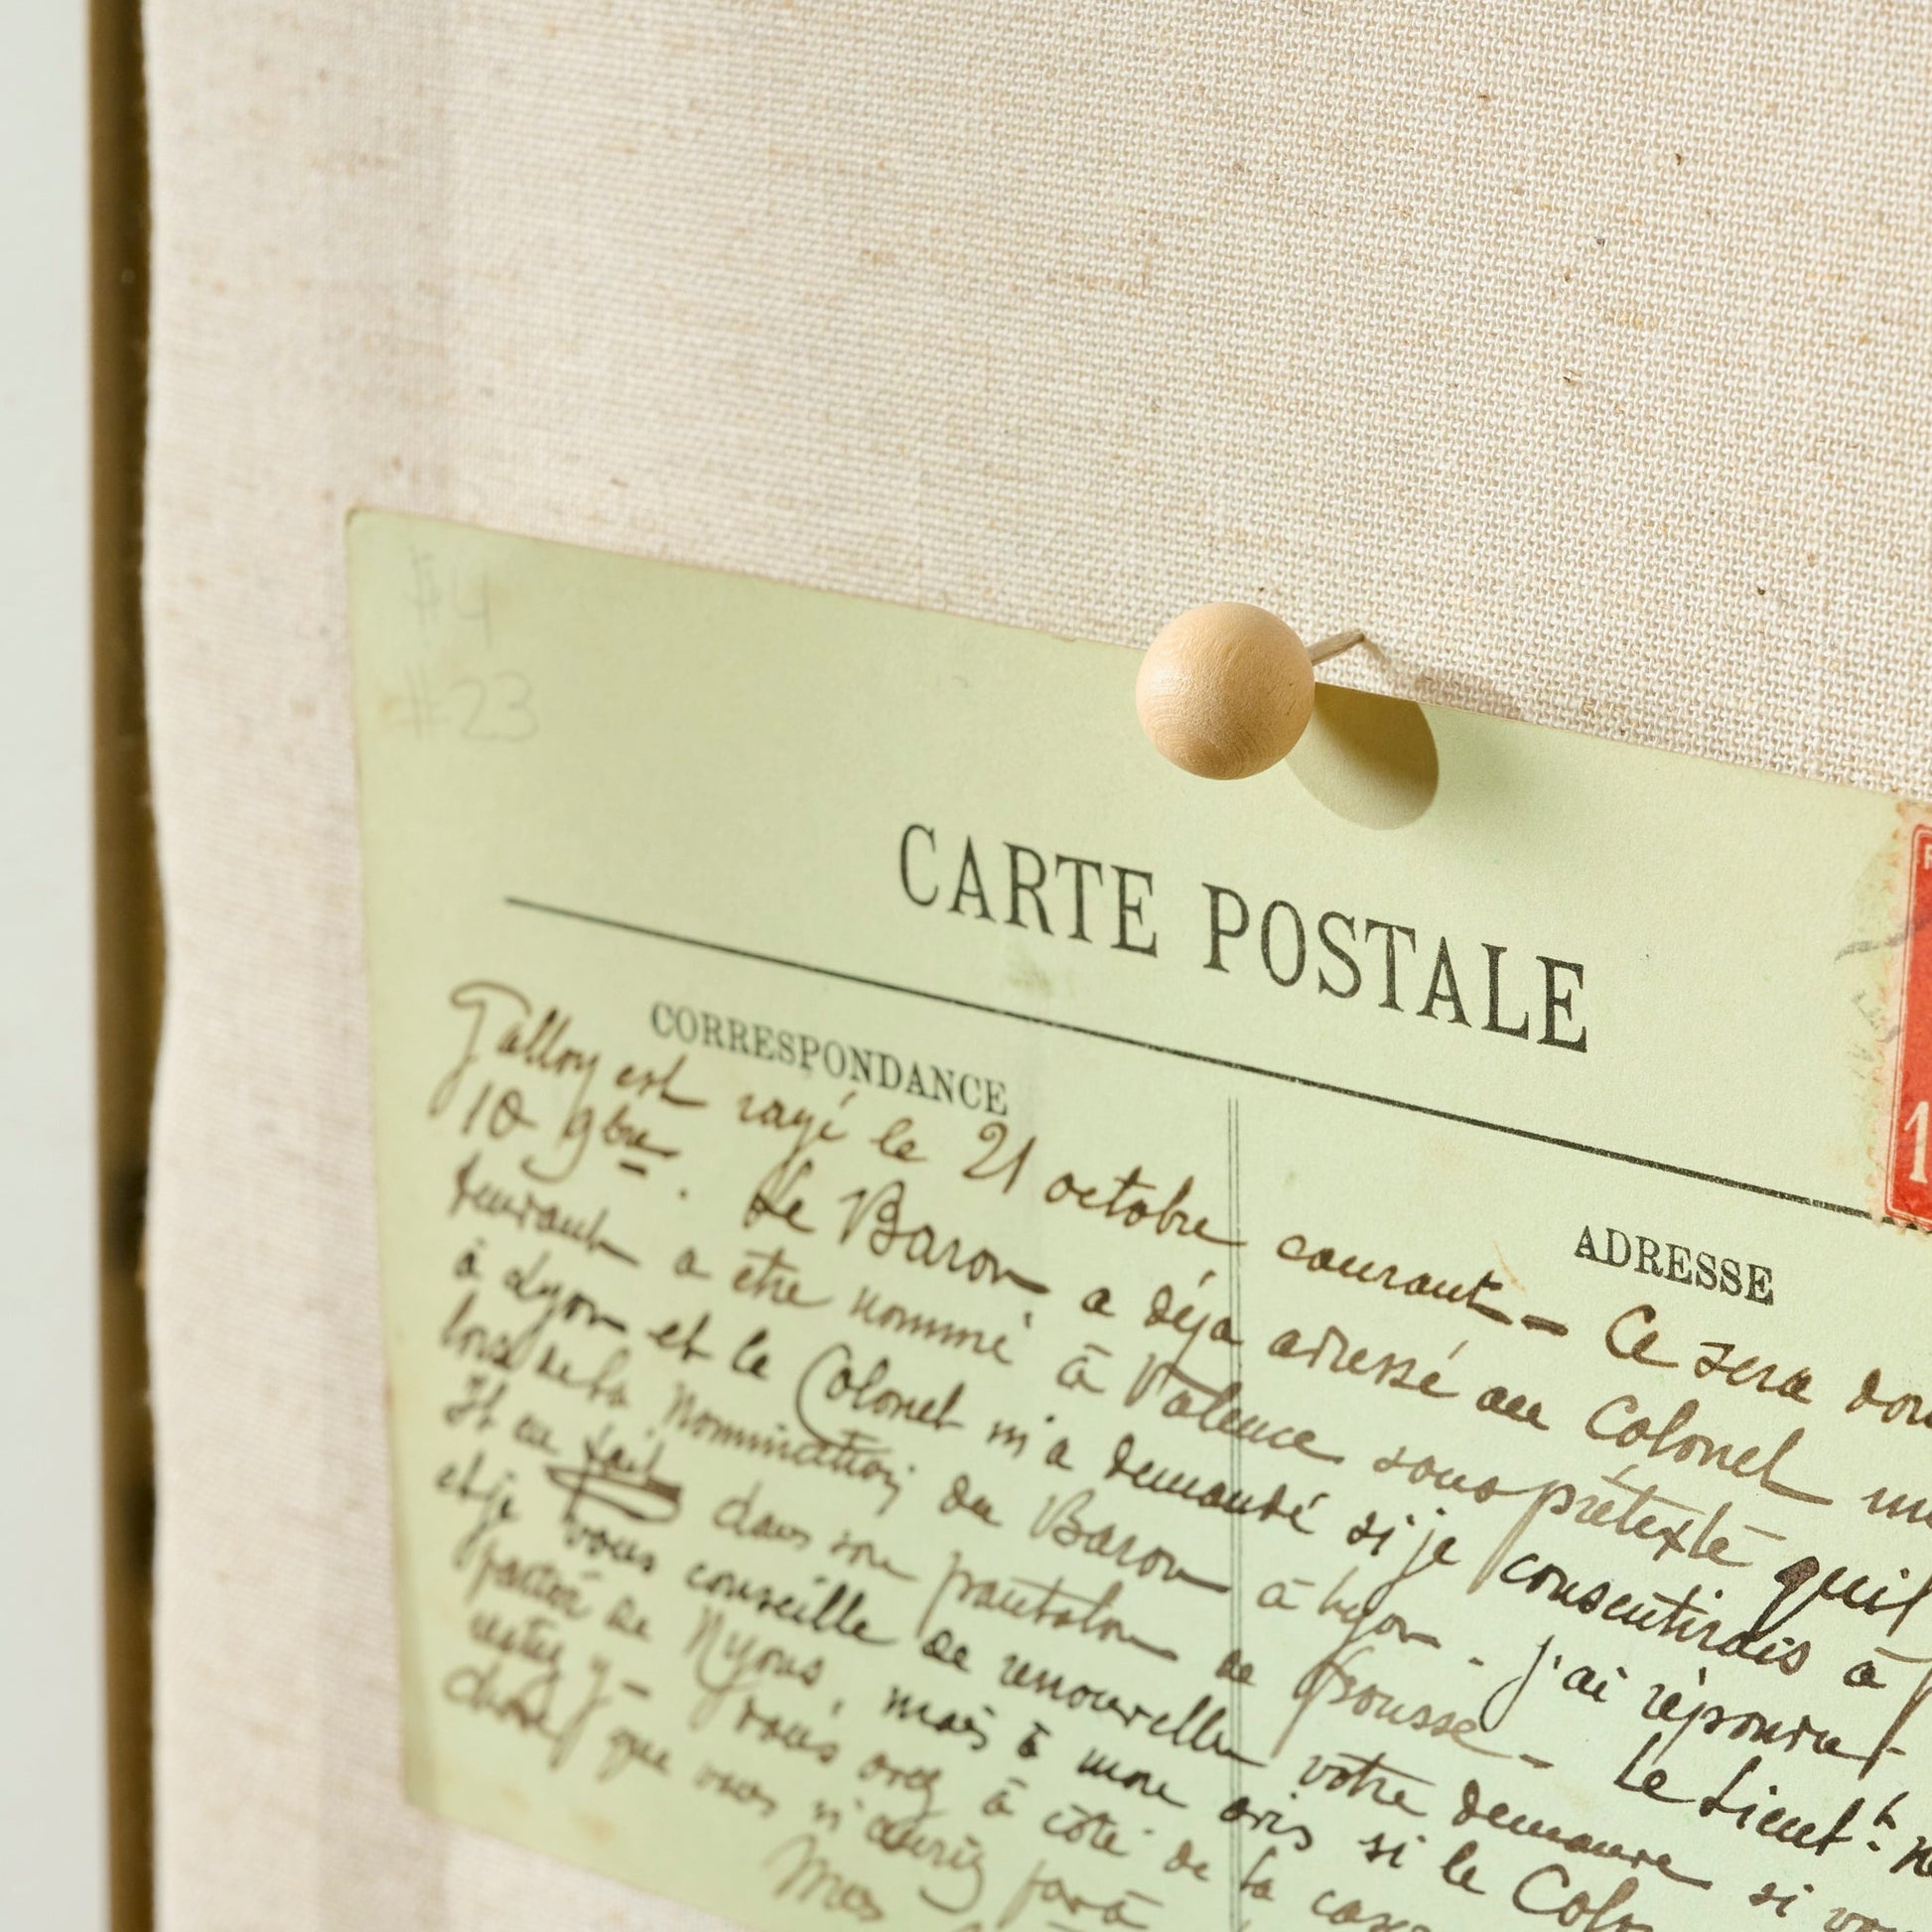 #4
#23
CARTE POSTALE
CORRESPONDANCE
ADRESSE
1
Galloy est rayé le 21 octobre courant – Ce sera
10 9bre. Le Baron a déja adressé au Colonel
a être nommé à Valence sous prétexte qu'il
à Lyon et le Colonel m'a demandé si je consentirais à
lors de la Nomination du Baron à Lyon – J'ai répondu
Il en fait dans son pantalon de frousse – Le Lieut^t
et je vous conseille de renouveller votre demande si
partir de Nyons, mais à mon avis si le
restez y – Vous avez à côté de la
chose que vous n'auriez pas à
Mes